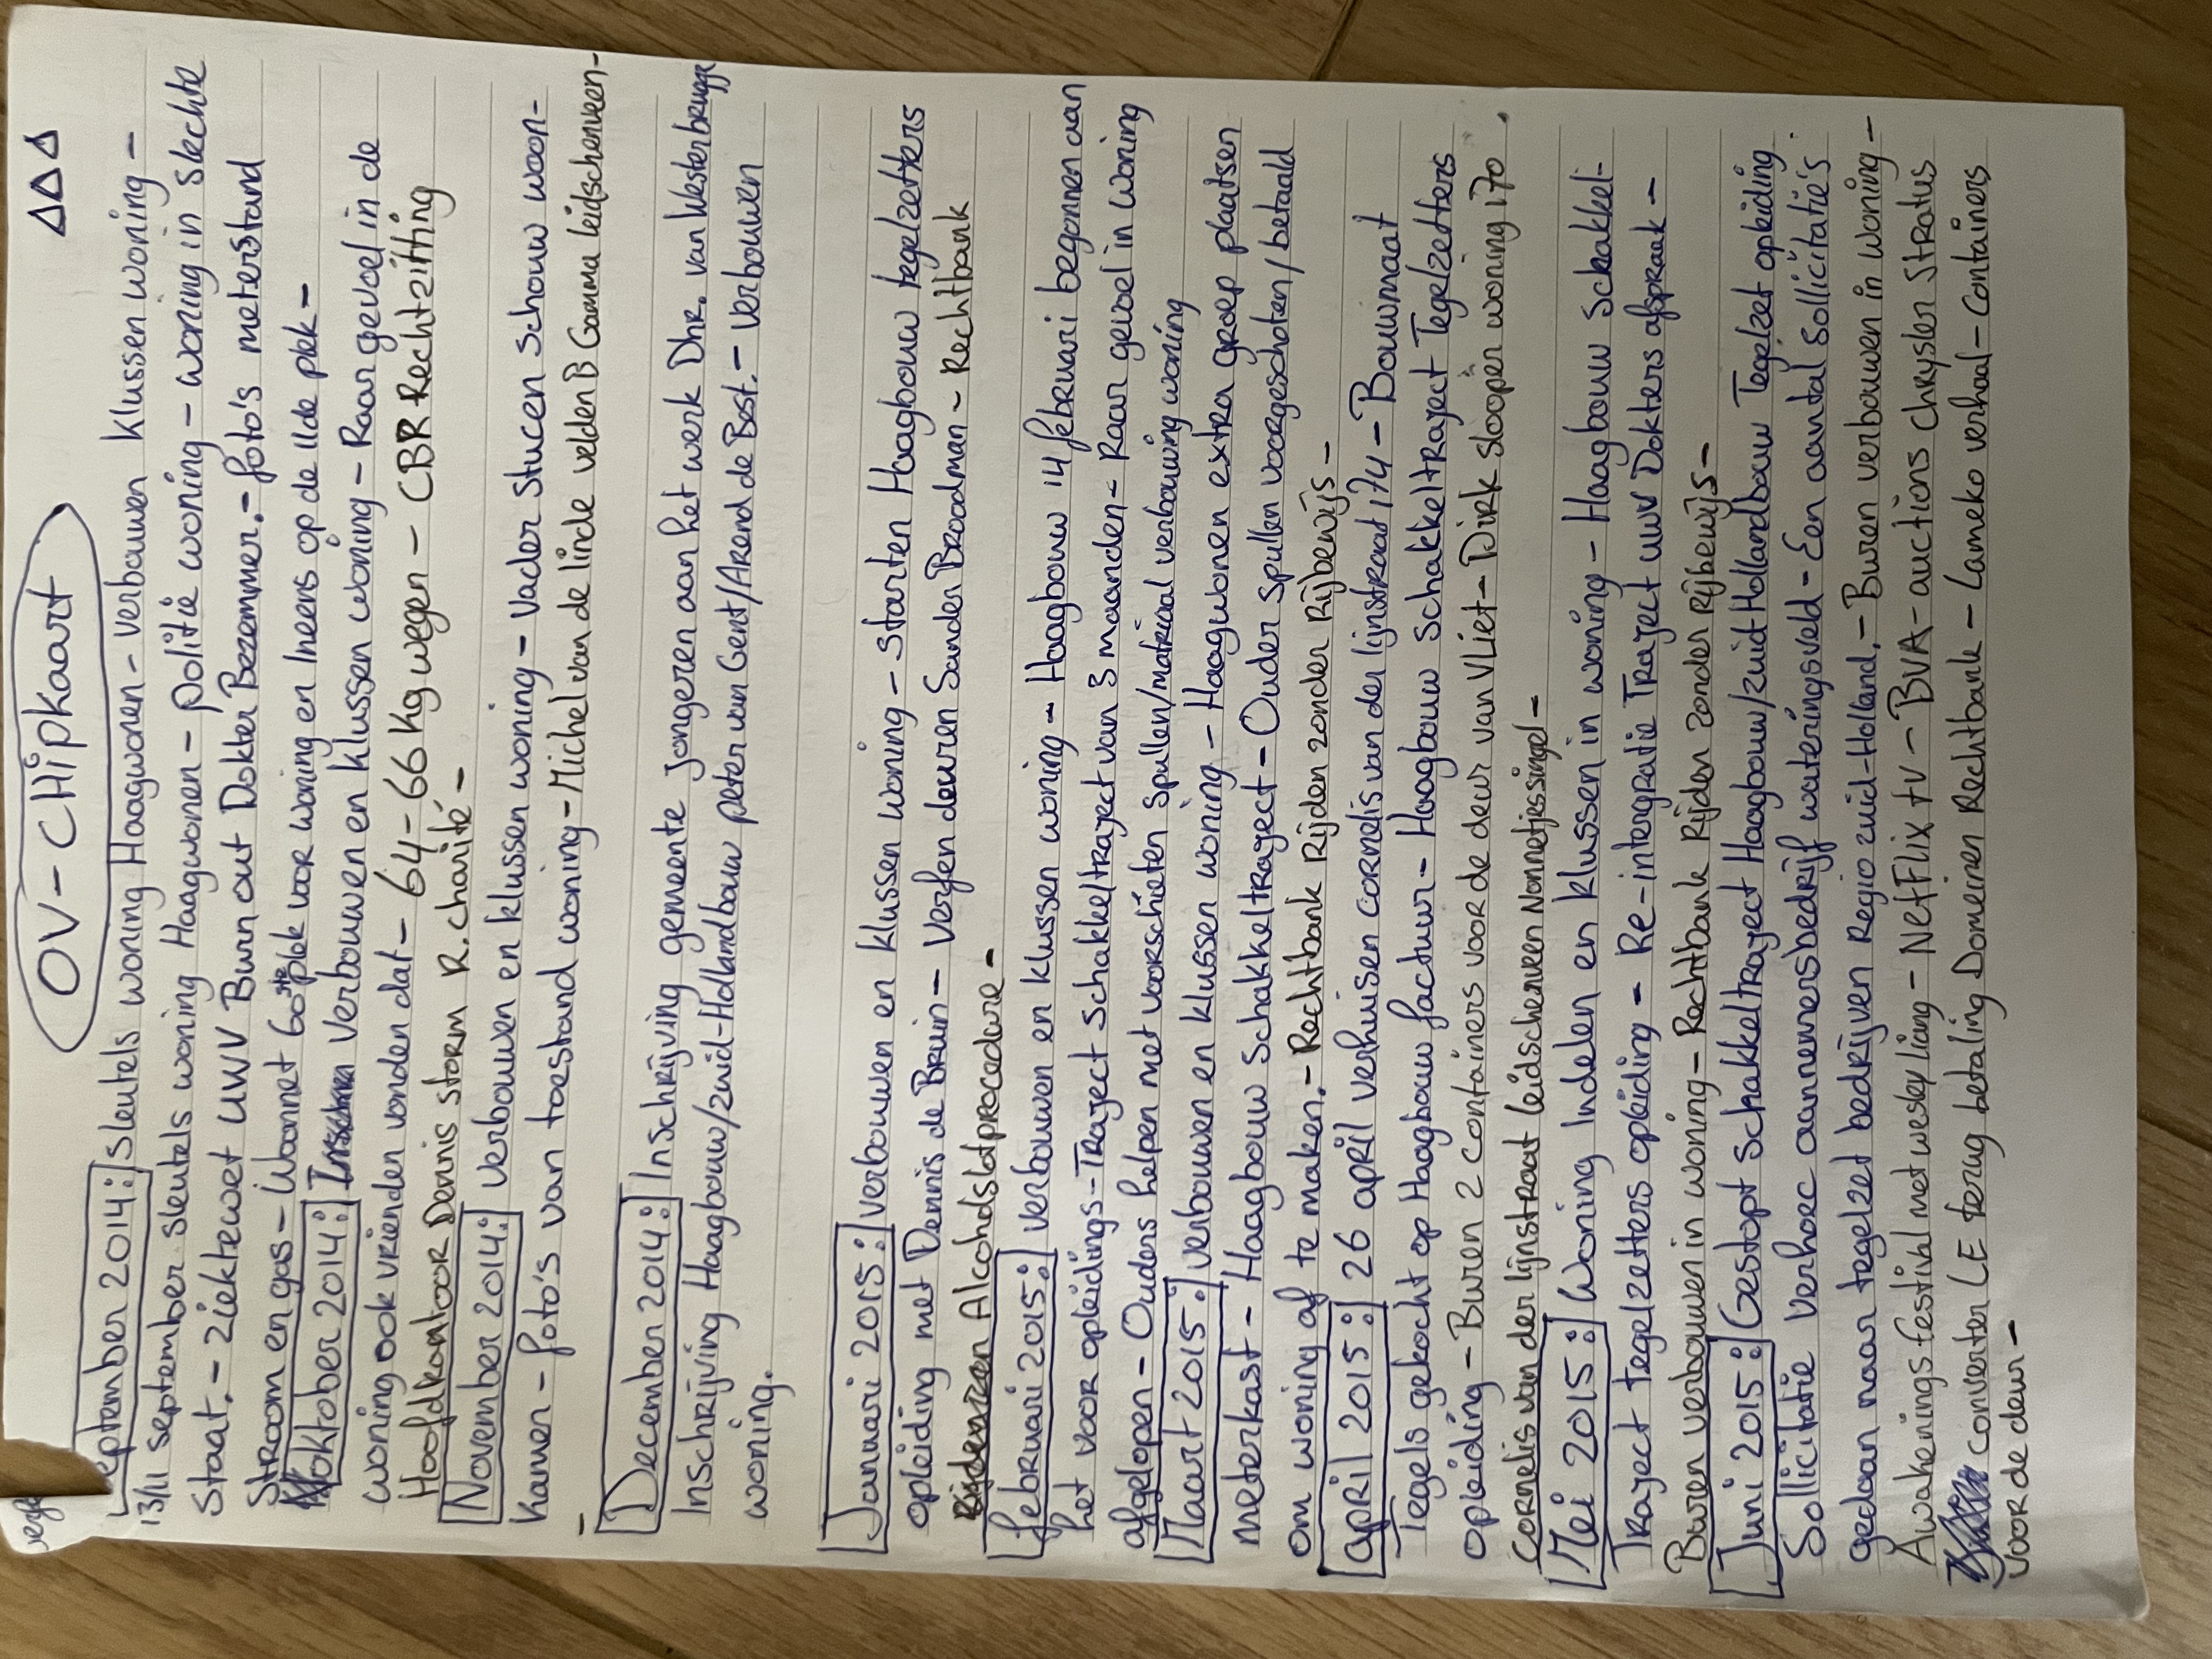 OV-CHipkaart
△△△
eptember 2014: Sleutels woning Haagwonen - Verbouwen Klussen woning -
13/11 September Sleutels woning Haagwonen - politie woning - woning in slechte
Staat. - Ziektewet UWV Burn out Dokter Bezemmer. - foto's meterstand
Stroom en gas - Woonnet 60ste plek voor woning en Ineens op de 11de plek -
Oktober 2014: Verbouwen en klussen woning - Raar gevoel in de
woning ook vrienden vonden dat - 64-66 Kg wegen - CBR Rechtzitting
Hoofdkantoor Dennis storm R. charité -
November 2014: Verbouwen en klussen woning - Vader Stucen Schouw woon-
Kamer - foto's van toestand woning - Michel van de linde velden B Gamma leidschenveen-
-
December 2014: Inschrijving gemeente Jongeren aan het werk Dhr. van Westerbrugge
Inschrijving Haagbouw/zuid-Hollandbouw peter van Gent/Arend de Best. - Verbouwen
woning.
Januari 2015: Verbouwen en klussen woning - Starten Haagbouw tegelzetters
opleiding met Dennis de Bruin - Verfen deuren Sander Broodman - Rechtbank
Alcoholslotprocedure -
februari 2015: Verbouwen en klussen woning - Haagbouw 14 februari begonnen aan
het voor opleidings - Traject Schakkeltraject van 3 maanden - Raar gevoel in woning
afgelopen - Ouders helpen met voorschieten Spullen/matriaal verbouwing woning
Maart 2015: Verbouwen en klussen woning - Haagwonen extra groep plaatsen
meterkast - Haagbouw Schakkeltraject - Ouder spullen voorgeschoten/betaald
om woning af te maken. - Rechtbank Rijden zonder Rijbewijs -
april 2015: 26 april verhuisen cornelis van der lijnstraat 174 - Bouwmaat
Tegels gekocht op Haagbouw factuur - Haagbouw schakkeltraject Tegelzetters
opleiding - Buren 2 containers voor de deur van Vliet - Dirk slooper woning 170
Cornelis van der lijnstraat leidschenveen Nonnetjessingel -
Mei 2015: Woning Indelen en klussen in woning - Haagbouw Schakkel-
Traject tegelzetters opleiding - Re-intergratie Traject uwv Dokters afspraak -
Buren verbouwen in woning - Rechtbank Rijden zonder Rijbewijs -
Juni 2015: Gestopt schakkeltraject Haagbouw/zuid Hollandbouw Tegelzet opleiding
Sollicitatie Verhoec aannemersbedrijf wateringsveld - Een aantal sollicitatie's
gedaan naar tegelzet bedrijven Regio zuid-Holland. - Buren verbouwen in woning -
Awakenings festival met wesley liang - NetFlix tv - BVA - auctions chrysler Stratus
converter LE terug betaling Domeinen Rechtbank - Lameko verhaal - Containers
voor de deur -